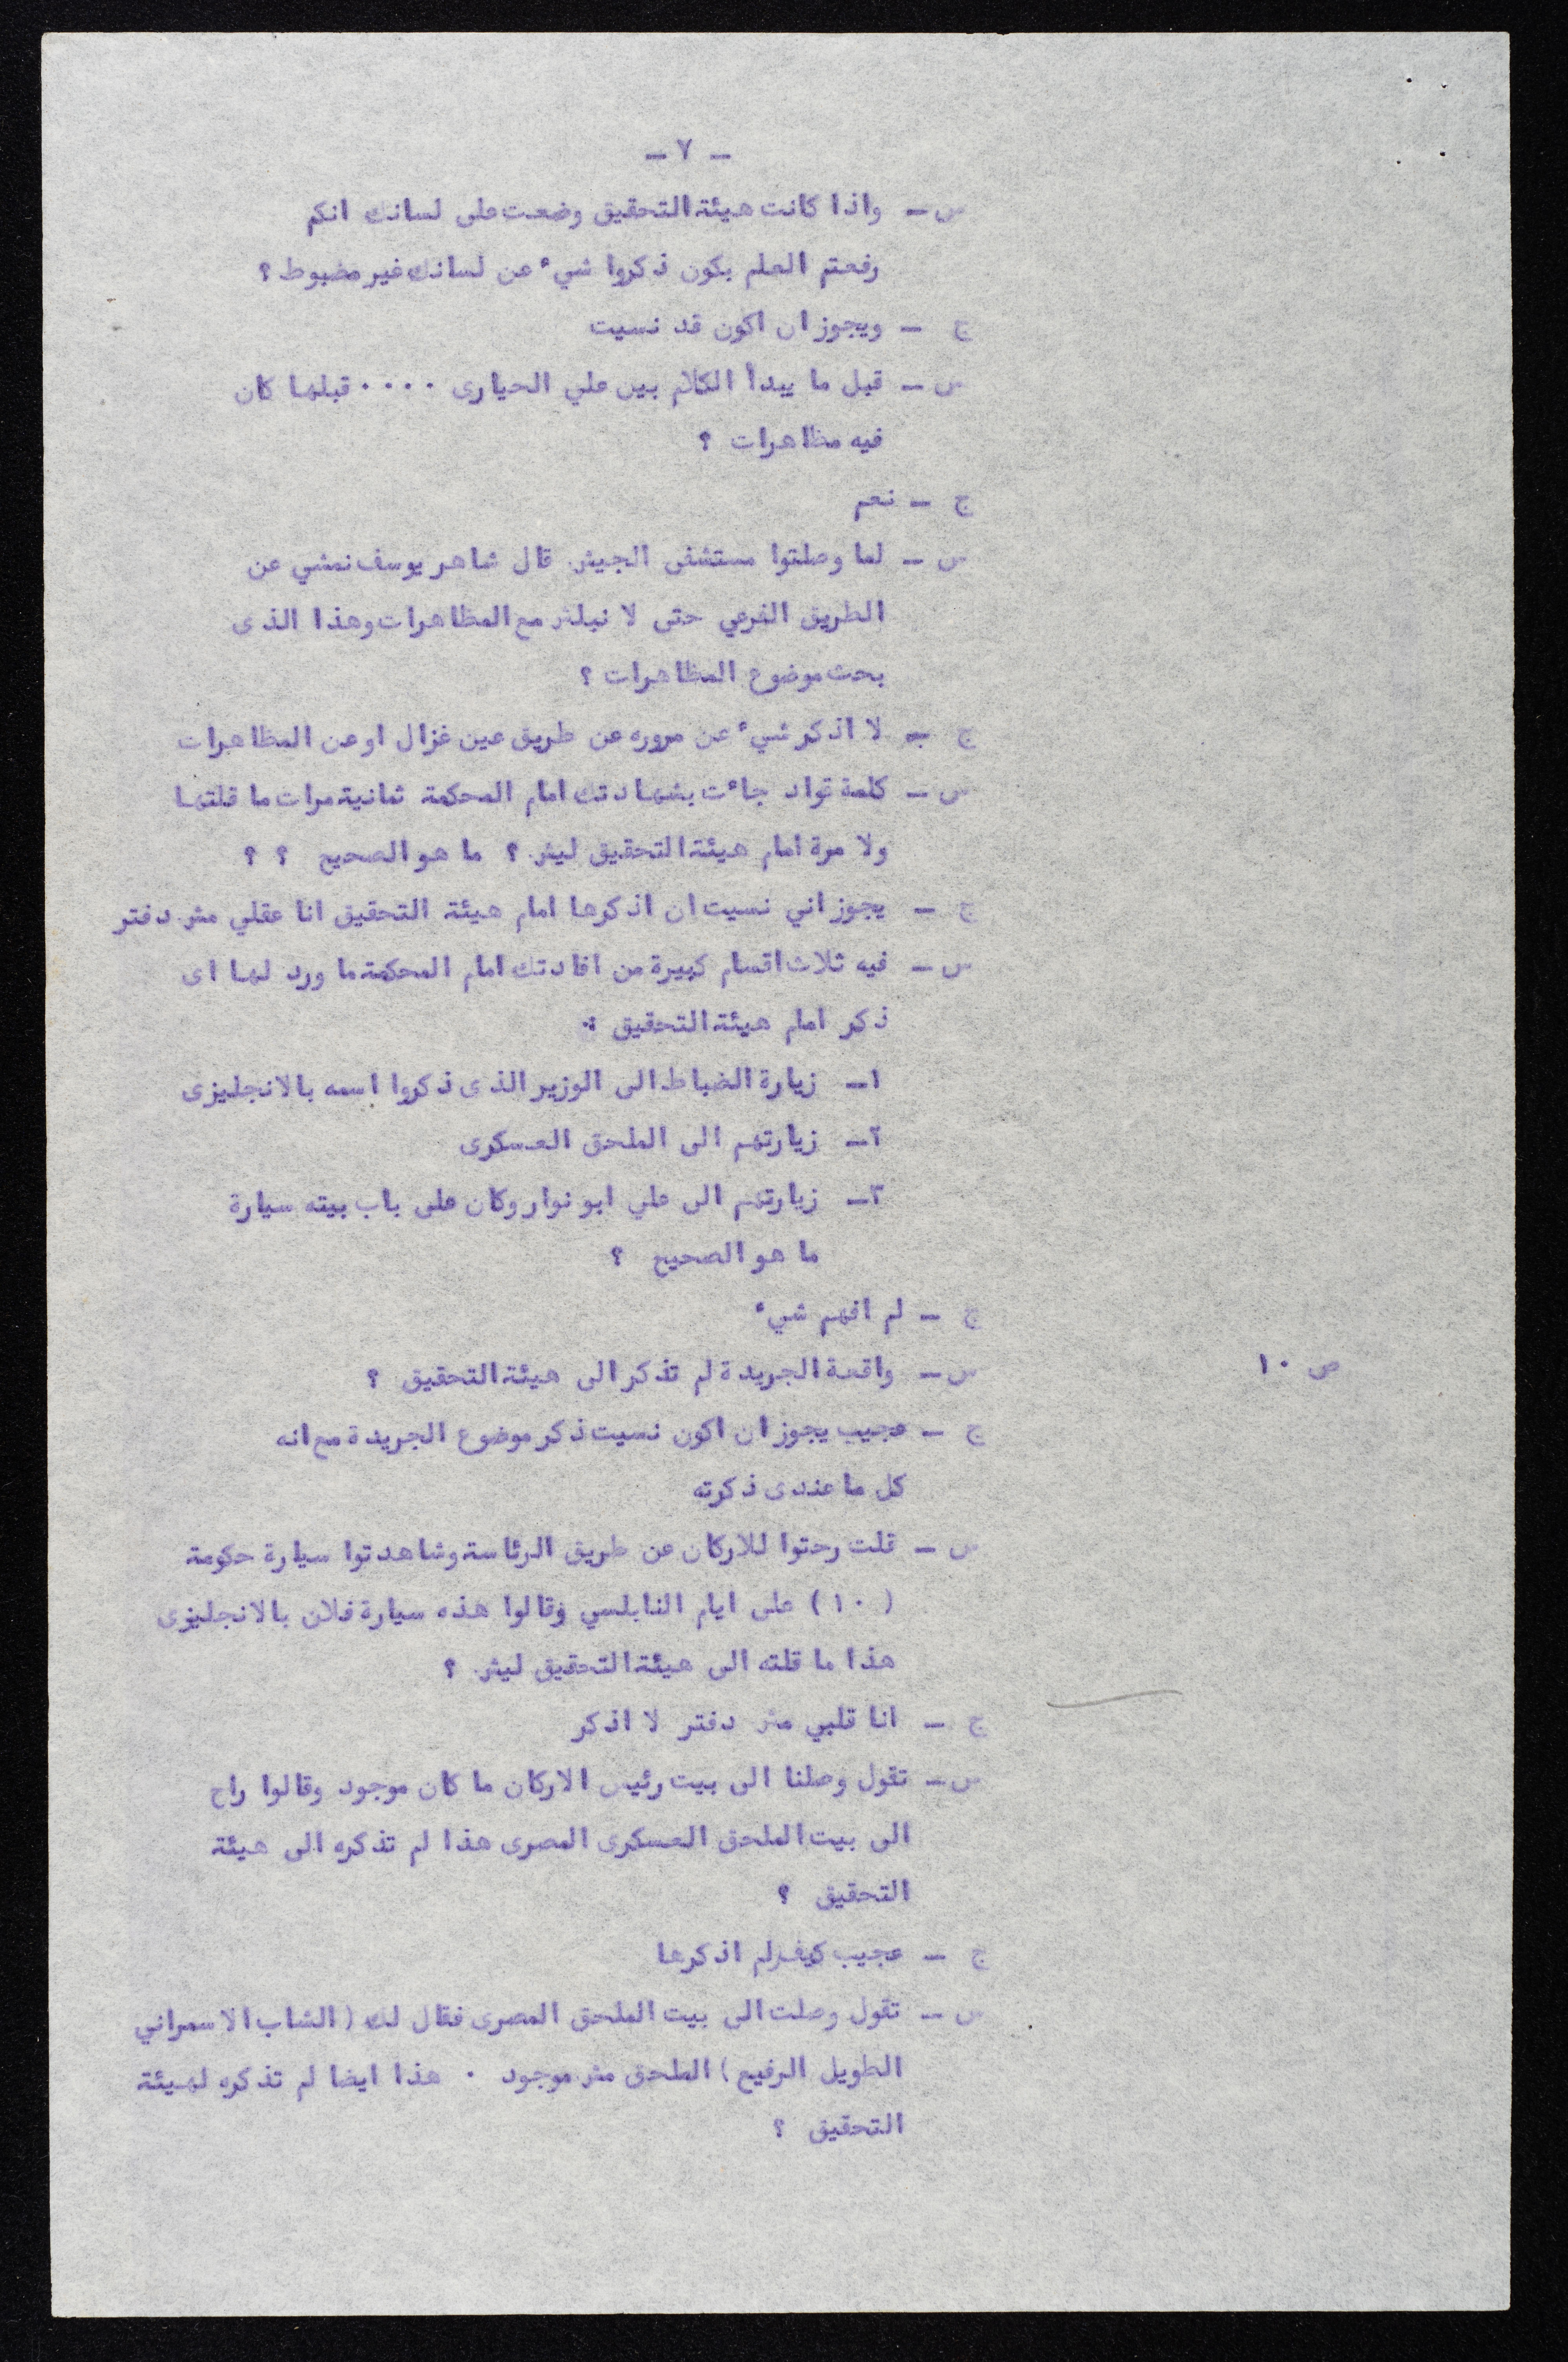 - ٧ -
س - واذا كانت هيئة التحقيق وضعت على لسانك انكم
رفعتم العلم بكون ذكروا شيء عن لسانك غير مضبوط ؟
ج - ويجوز ان اكون قد نسيت
س - قبل ما يبدأ الكلام بين علي الحيارى ٠٠٠٠ قبلها كان
فيه مظاهرات ؟
ج - نعم
س - لما وصلتوا مستشفى الجيش قال شاهر يوسف نمشي عن
الطريق الفرعي حتى لا نبلش مع المظاهرات وهذا الذى
بحث موضوع المظاهرات ؟
ج - لا اذكر شيء عن مروره عن طريق عين غزال او عن المظاهرات
س - كلمة تواد جاءت بشهادتك امام المحكمة ثمانية مرات ما قلتها
ولا مرة امام هيئة التحقيق ليش ؟ ما هو الصحيح ؟ ؟
ج - يجوز اني نسيت ان اذكرها امام هيئة التحقيق انا عقلي مش دفتر
س - فيه ثلاث اقسام كبيرة من افادتك امام المحكمة ما ورد لها اى
ذكر امام هيئة التحقيق :
١- زيارة الضباط الى الوزير الذى ذكروا اسمه بالانجليزى
٢- زيارتهم الى الملحق العسكرى
٣- زيارتهم الى علي ابو نوار وكان على باب بيته سيارة
ما هو الصحيح ؟
ج - لم افهم شيء
ص ١٠ س - واقعة الجريدة لم تذكر الى هيئة التحقيق ؟
ج - عجيب يجوز ان اكون نسيت ذكر موضوع الجريدة مع انه
كل ما عندى ذكرته
س - قلت رحتوا للاركان عن طريق الرئاسة وشاهدتوا سيارة حكومة
( ١٠ ) على ايام النابلسي وقالوا هذه سيارة فلان بالانجليزى
هذا ما قلته الى هيئة التحقيق ليش ؟
ج - انا قلبي مش دفتر لا اذكر
س - تقول وصلنا الى بيت رئيس الاركان ما كان موجود وقالوا راح
الى بيت الملحق العسكرى المصرى هذا لم تذكره الى هيئة
التحقيق ؟
ج - عجيب كيف لم اذكرها
س - تقول وصلت الى بيت الملحق المصرى فقال لك ( الشاب الاسمراني
الطويل الرفيع ) الملحق مش موجود ٠ هذا ايضا لم تذكره لهيئة
التحقيق ؟